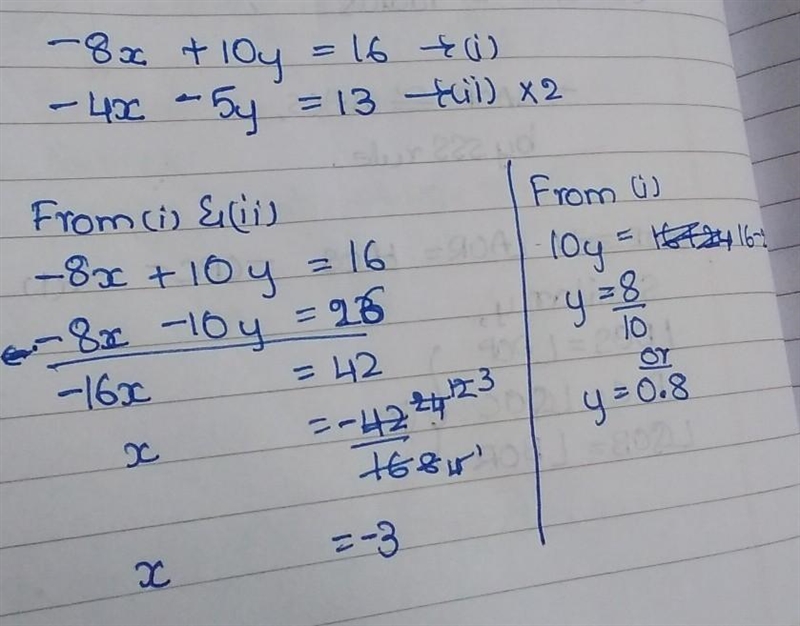 -8x + 10y = 16 → (i)
-4x - 5y = 13 → (ii) × 2
From (i) & (ii)
-8x + 10y = 16
-8x - 10y = 26
-16x = 42
x = -42 24 12 3
16 8 4 1
x = -3
From (i)
10y = 16+24 16-
y = 8
10
or
y = 0.8